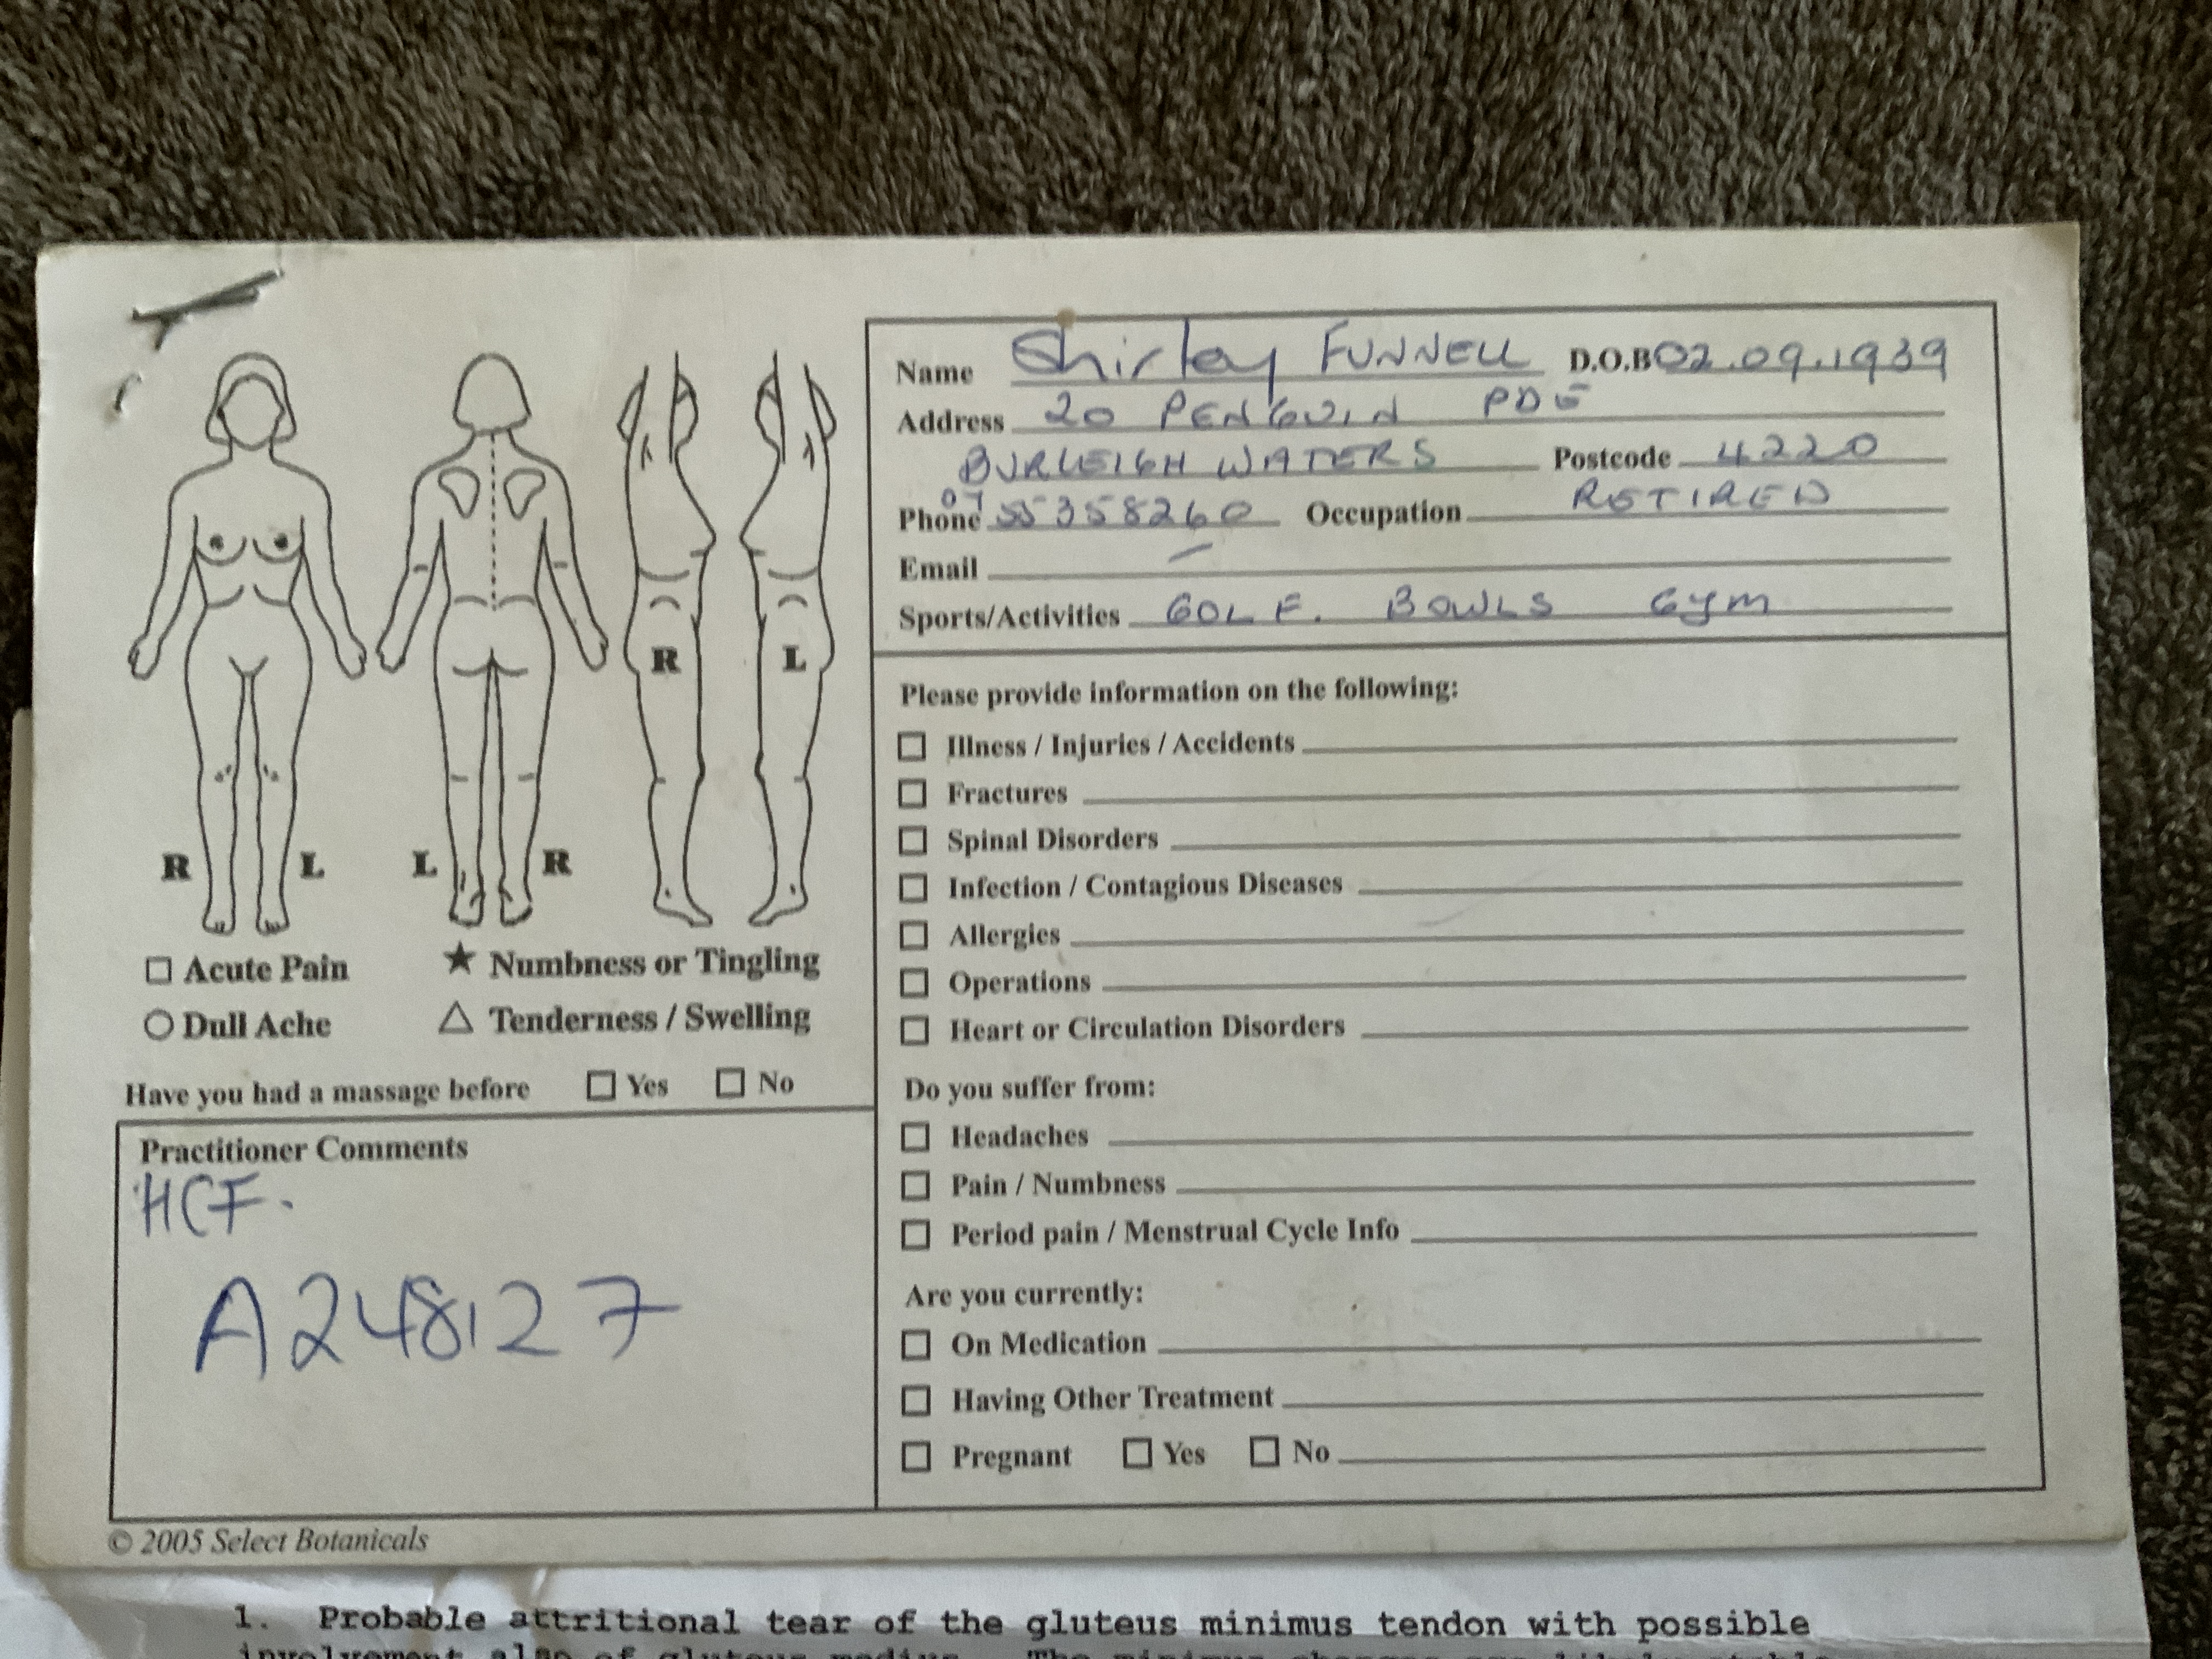 Name Shirley FUNNELL D.O.B 02.09.1939
Address 20 PENGUIN PDE
BURLEIGH WATERS Postcode 4220
Phone 07 55358260 Occupation RETIRED
Email –
Sports/Activities GOLF. BOWLS Gym
R L
R L L R
□ Acute Pain ★ Numbness or Tingling
○ Dull Ache △ Tenderness / Swelling
Have you had a massage before □ Yes □ No
Practitioner Comments
HCF.
A248127
Please provide information on the following:
□ Illness / Injuries / Accidents
□ Fractures
□ Spinal Disorders
□ Infection / Contagious Diseases
□ Allergies
□ Operations
□ Heart or Circulation Disorders
Do you suffer from:
□ Headaches
□ Pain / Numbness
□ Period pain / Menstrual Cycle Info
Are you currently:
□ On Medication
□ Having Other Treatment
□ Pregnant □ Yes □ No
© 2005 Select Botanicals
1. Probable attritional tear of the gluteus minimus tendon with possible
involvement also of gluteus medius. The minimus changes are likely